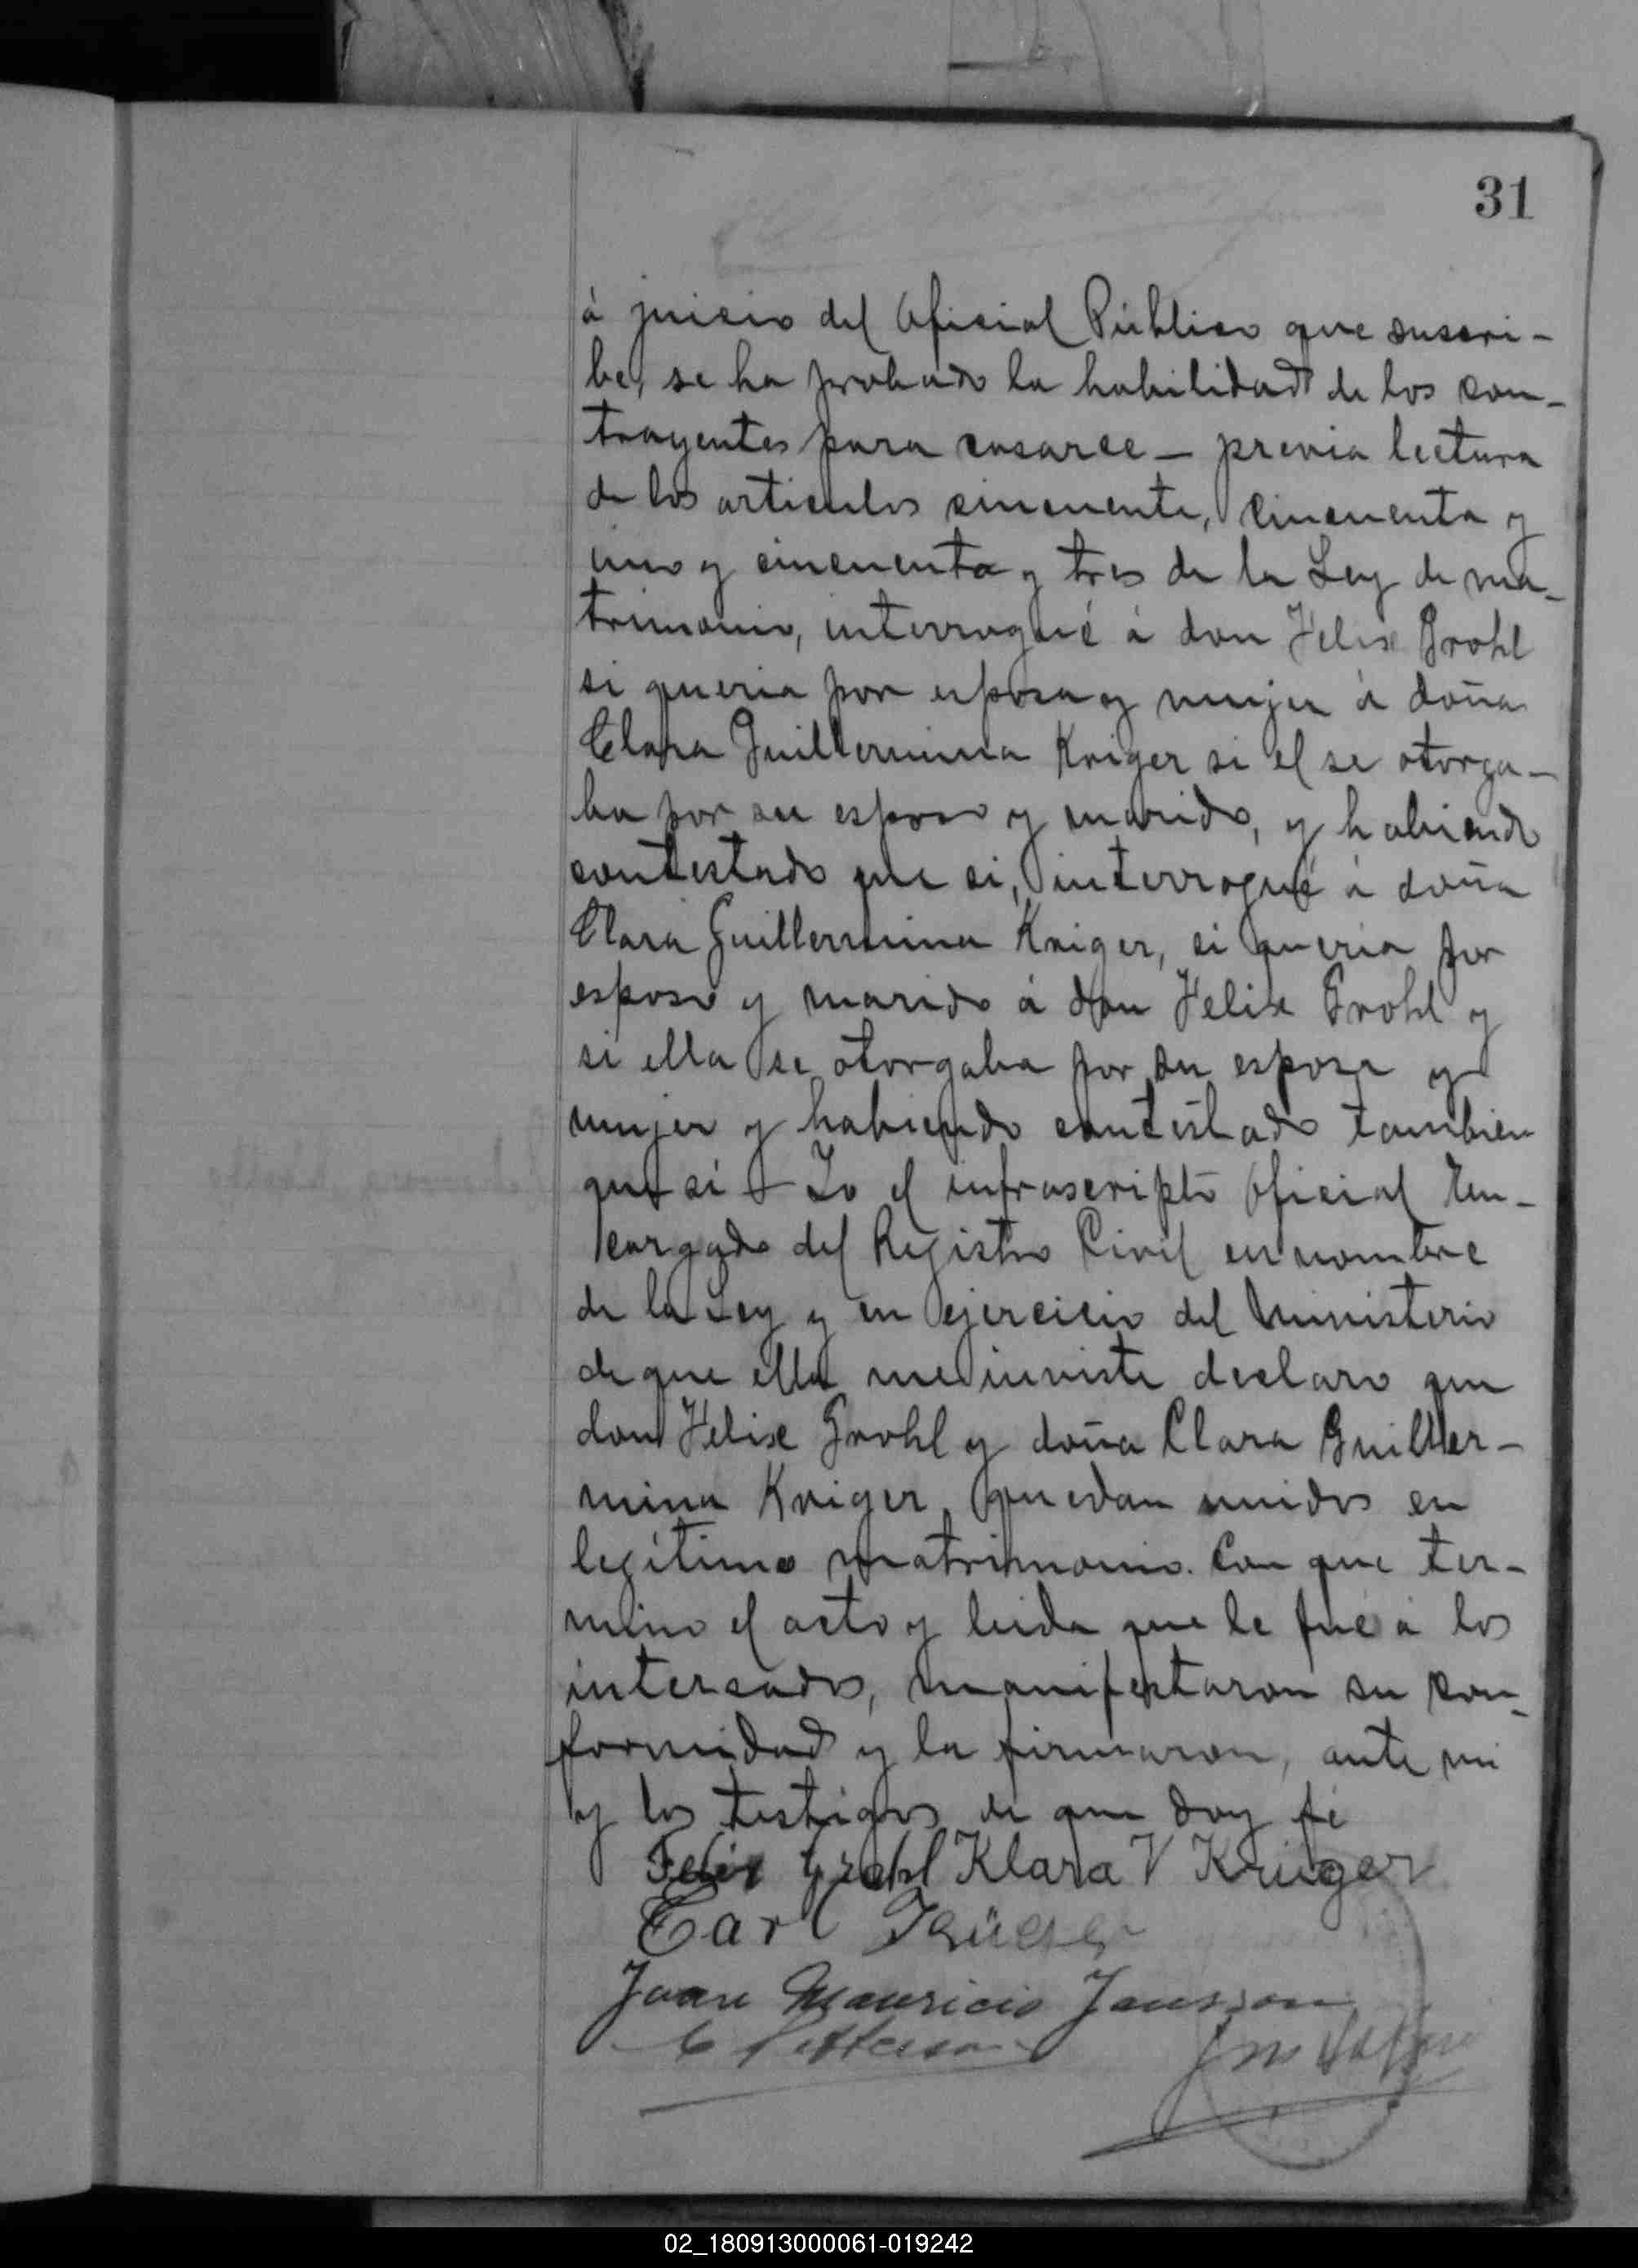 31
á juicio del Oficial Público que suscri-
be, se ha probado la habilidad de los con-
trayentes para casarce - previa lectura
de los articulos cincuenta, cincuenta y
uno y cincuenta y tres de la Ley de ma-
trimonio, interrogué á don Felix Grohl
si queria por esposa y mujer á doña
Clara Guillermina Kriger si el se otorga-
ba por su esposo y marido, y habiendo
contestado que si, interrogué á doña
Clara Guillermina Kriger, si queria por
esposo y marido á don Felix Grohl y
si ella se otorgaba por su esposa y
mujer y habiendo contestado tambien
que si - Yo el infrascripto Oficial En-
cargado del Registro Civil en nombre
de la Ley y en ejercicio del Ministerio
de que ella me inviste declaro que
don Felix Grohl y doña Clara Guiller-
mina Kriger, quedan unidos en
legítimo matrimonio. Con que ter-
mino el acto y leida que le fué á los
interesados, manifestaron su con-
formidad y la firmaron, ante mi
y los testigos de que doy fé
Felix Grohl Klara V Krüger
Carl Krüger
Juan Mauricio Jansson
02_180913000061-019242